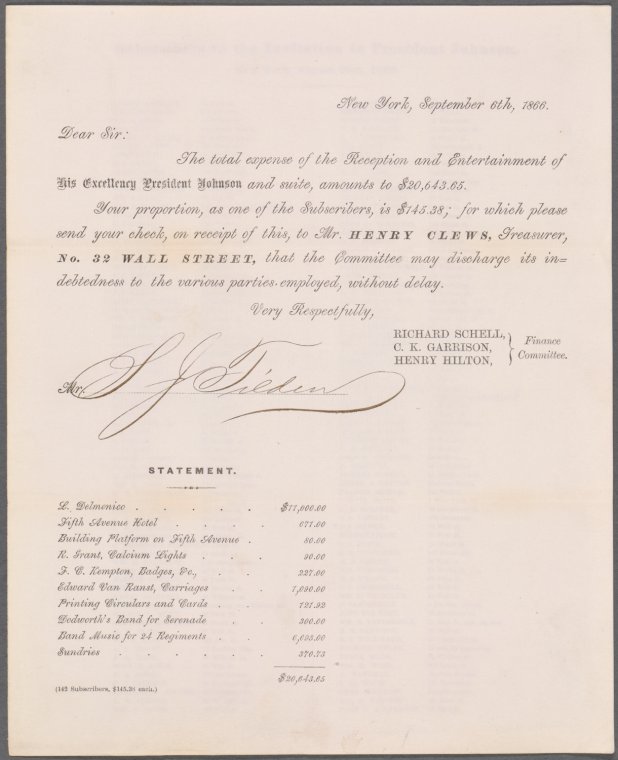 New York, September 6th, 1866.
Dear Sir:
The total expense of the Reception and Entertainment of
His Excellency President Johnson and suite, amounts to $20,643.65.
Your proportion, as one of the Subscribers, is $145.38; for which please
send your check, on receipt of this, to Mr. HENRY CLEWS, Treasurer,
No. 32 WALL STREET, that the Committee may discharge its in=
debtedness to the various parties employed, without delay.
Very Respectfully,
RICHARD SCHELL,
C. K. GARRISON,
HENRY HILTON,
Finance
Committee.
Mr. S J Tilden
STATEMENT.
L. Delmonico . . . . . . $11,000.00
Fifth Avenue Hotel . . . . 671.00
Building Platform on Fifth Avenue . 80.00
R. Grant, Calcium Lights . . . 90.00
F. C. Kempton, Badges, &c., . . . 227.00
Edward Van Ranst, Carriages . . 1,090.00
Printing Circulars and Cards . . 121.92
Dodworth's Band for Serenade . . 300.00
Band Music for 24 Regiments . . 6,693.00
Sundries . . . . . . 370.73
$20,643.65
(142 Subscribers, $145.38 each.)